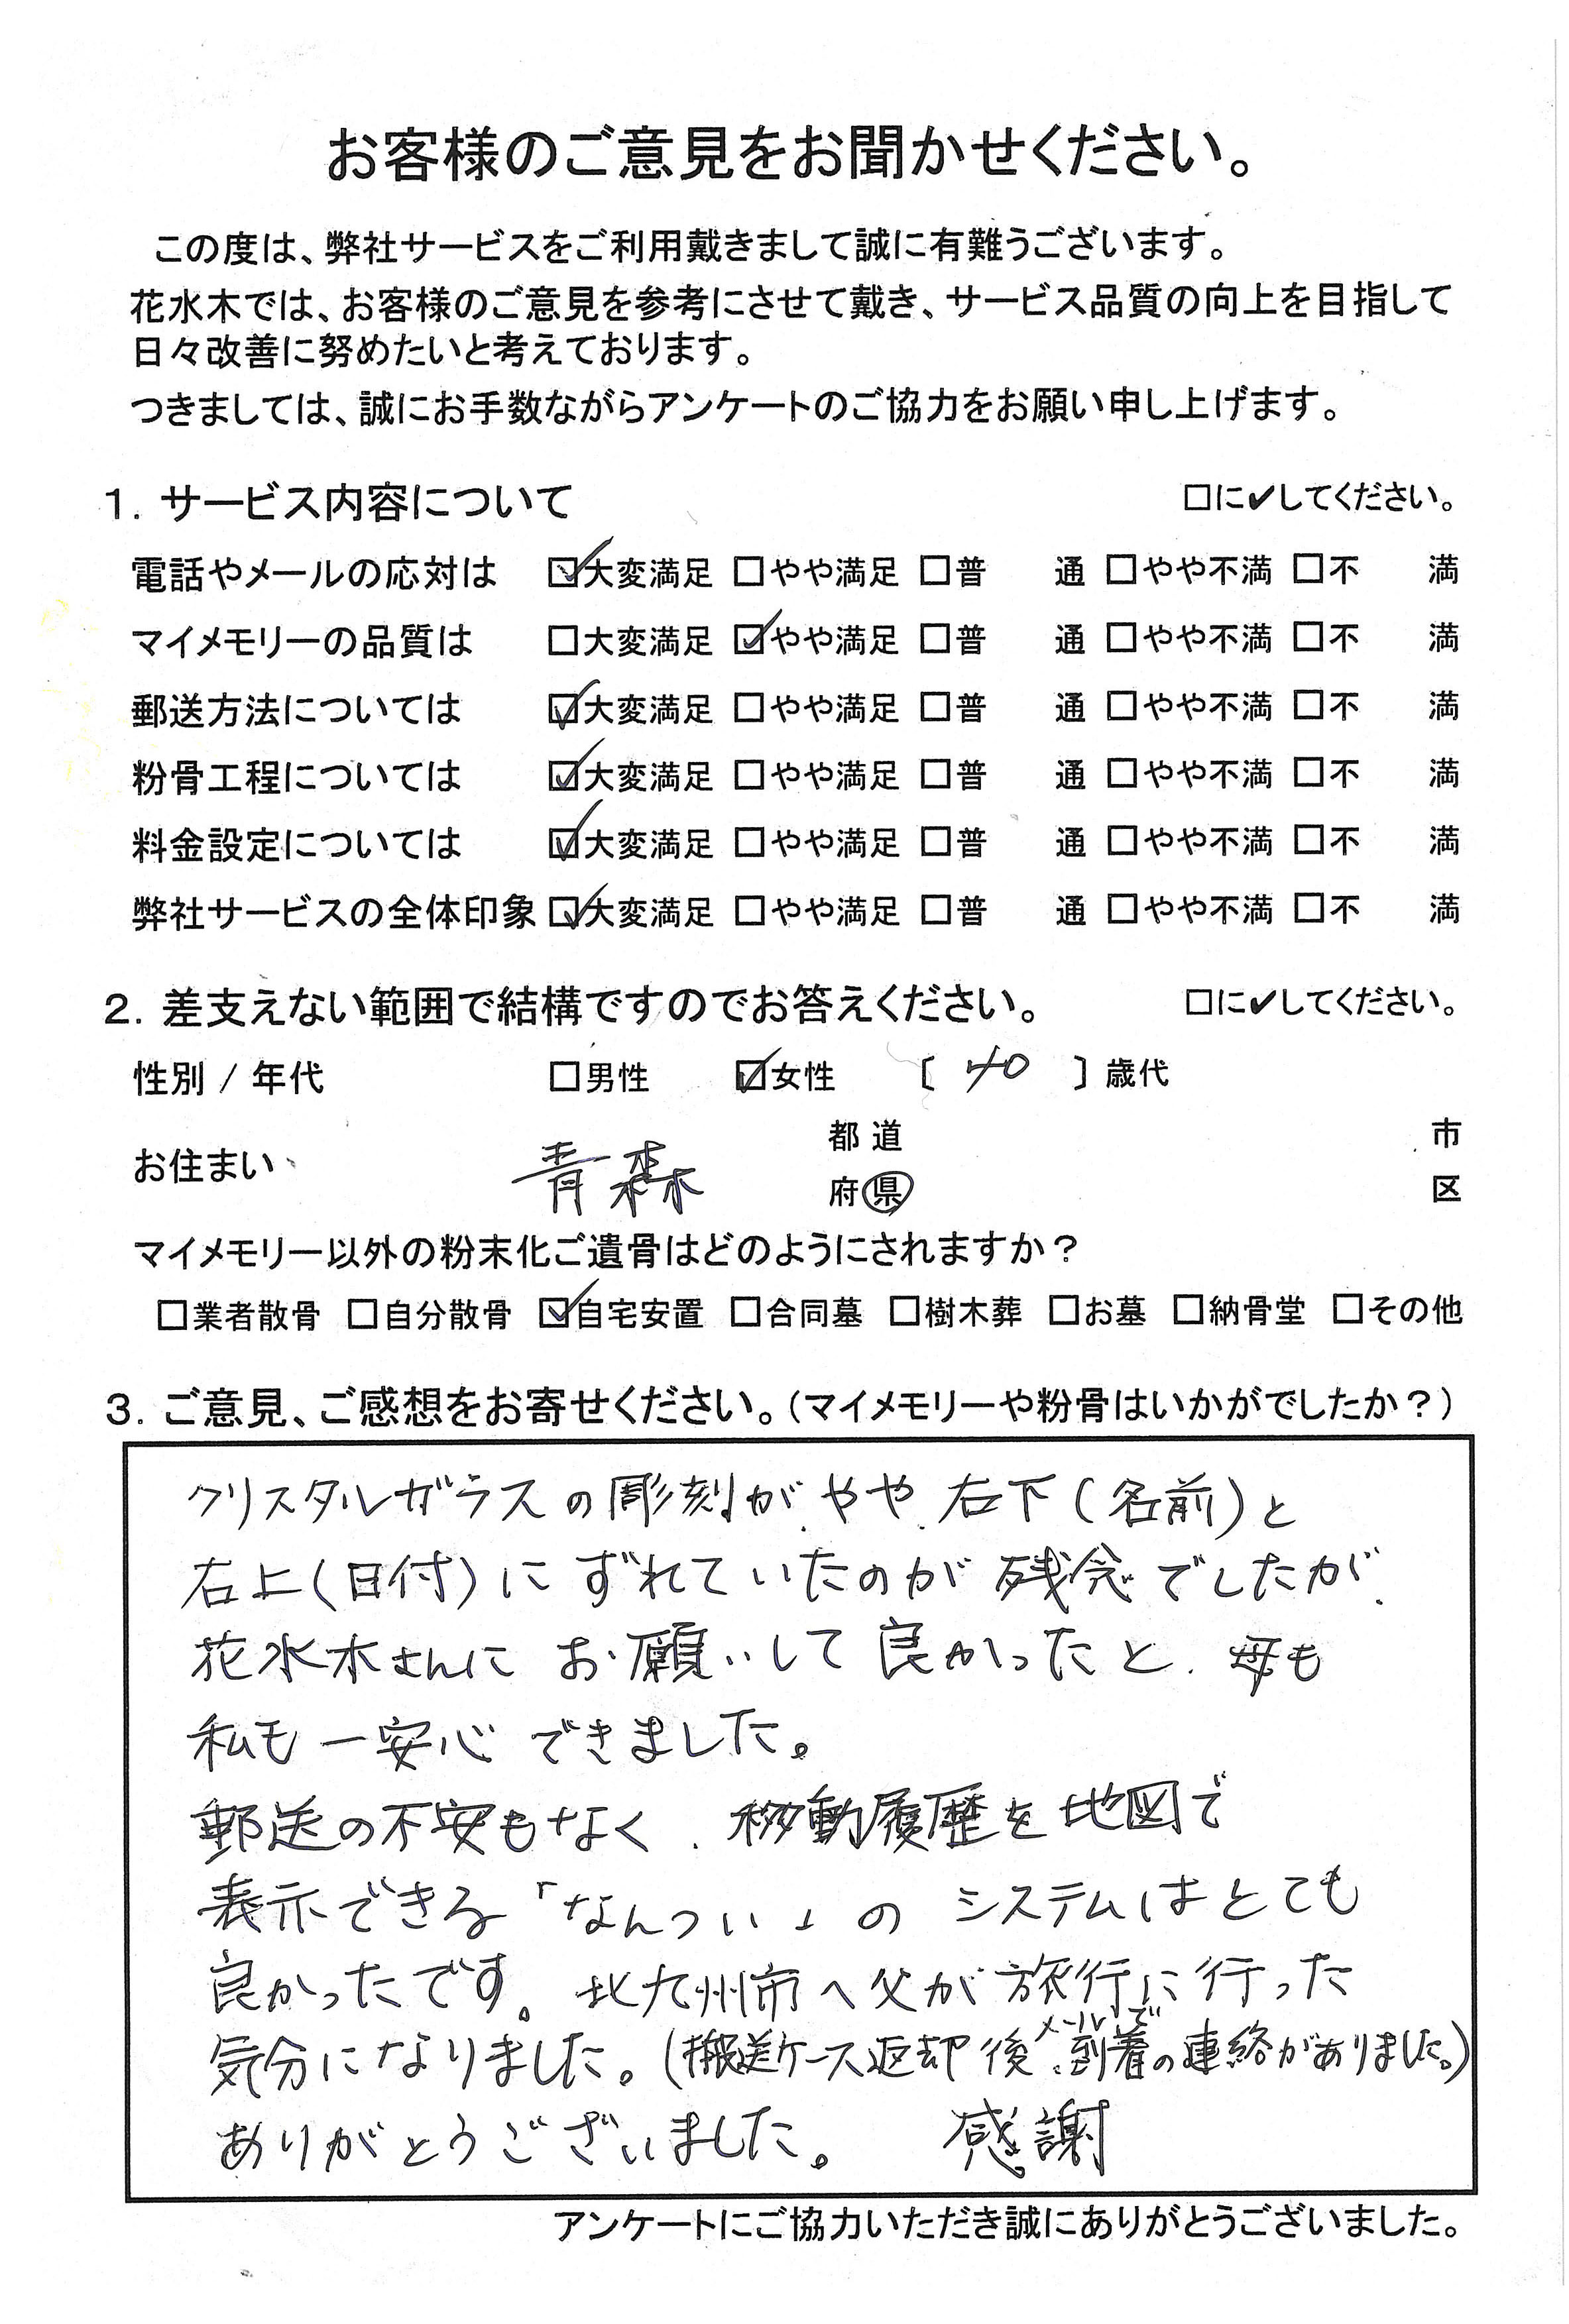 お客様のご意見をお聞かせください。
この度は、弊社サービスをご利用戴きまして誠に有難うございます。
花水木では、お客様のご意見を参考にさせて戴き、サービス品質の向上を目指して
日々改善に努めたいと考えております。
つきましては、誠にお手数ながらアンケートのご協力をお願い申し上げます。
1. サービス内容について □に✔してください。
電話やメールの応対は ☑大変満足 □やや満足 □普 通 □やや不満 □不 満
マイメモリーの品質は □大変満足 ☑やや満足 □普 通 □やや不満 □不 満
郵送方法については ☑大変満足 □やや満足 □普 通 □やや不満 □不 満
粉骨工程については ☑大変満足 □やや満足 □普 通 □やや不満 □不 満
料金設定については ☑大変満足 □やや満足 □普 通 □やや不満 □不 満
弊社サービスの全体印象 ☑大変満足 □やや満足 □普 通 □やや不満 □不 満
2. 差支えない範囲で結構ですのでお答えください。 □に✔してください。
性別 / 年代 □男性 ☑女性 〔 40 〕歳代
都 道 市
お住まい 青森
府 県 区
マイメモリー以外の粉末化ご遺骨はどのようにされますか？
□業者散骨 □自分散骨 ☑自宅安置 □合同墓 □樹木葬 □お墓 □納骨堂 □その他
3. ご意見、ご感想をお寄せください。（マイメモリーや粉骨はいかがでしたか？）
クリスタルガラスの彫刻が、やや、右下（名前）と
右上（日付）にずれていたのが残念でしたが、
花水木さんにお願いして良かったと、母も
私も一安心できました。
郵送の不安もなく、移動履歴を地図で
表示できる「なんつい」のシステムはとても
良かったです。北九州市へ父が旅行に行った
気分になりました。（搬送ケース返却後、メールで到着の連絡がありました。）
ありがとうございました。 感謝
アンケートにご協力いただき誠にありがとうございました。